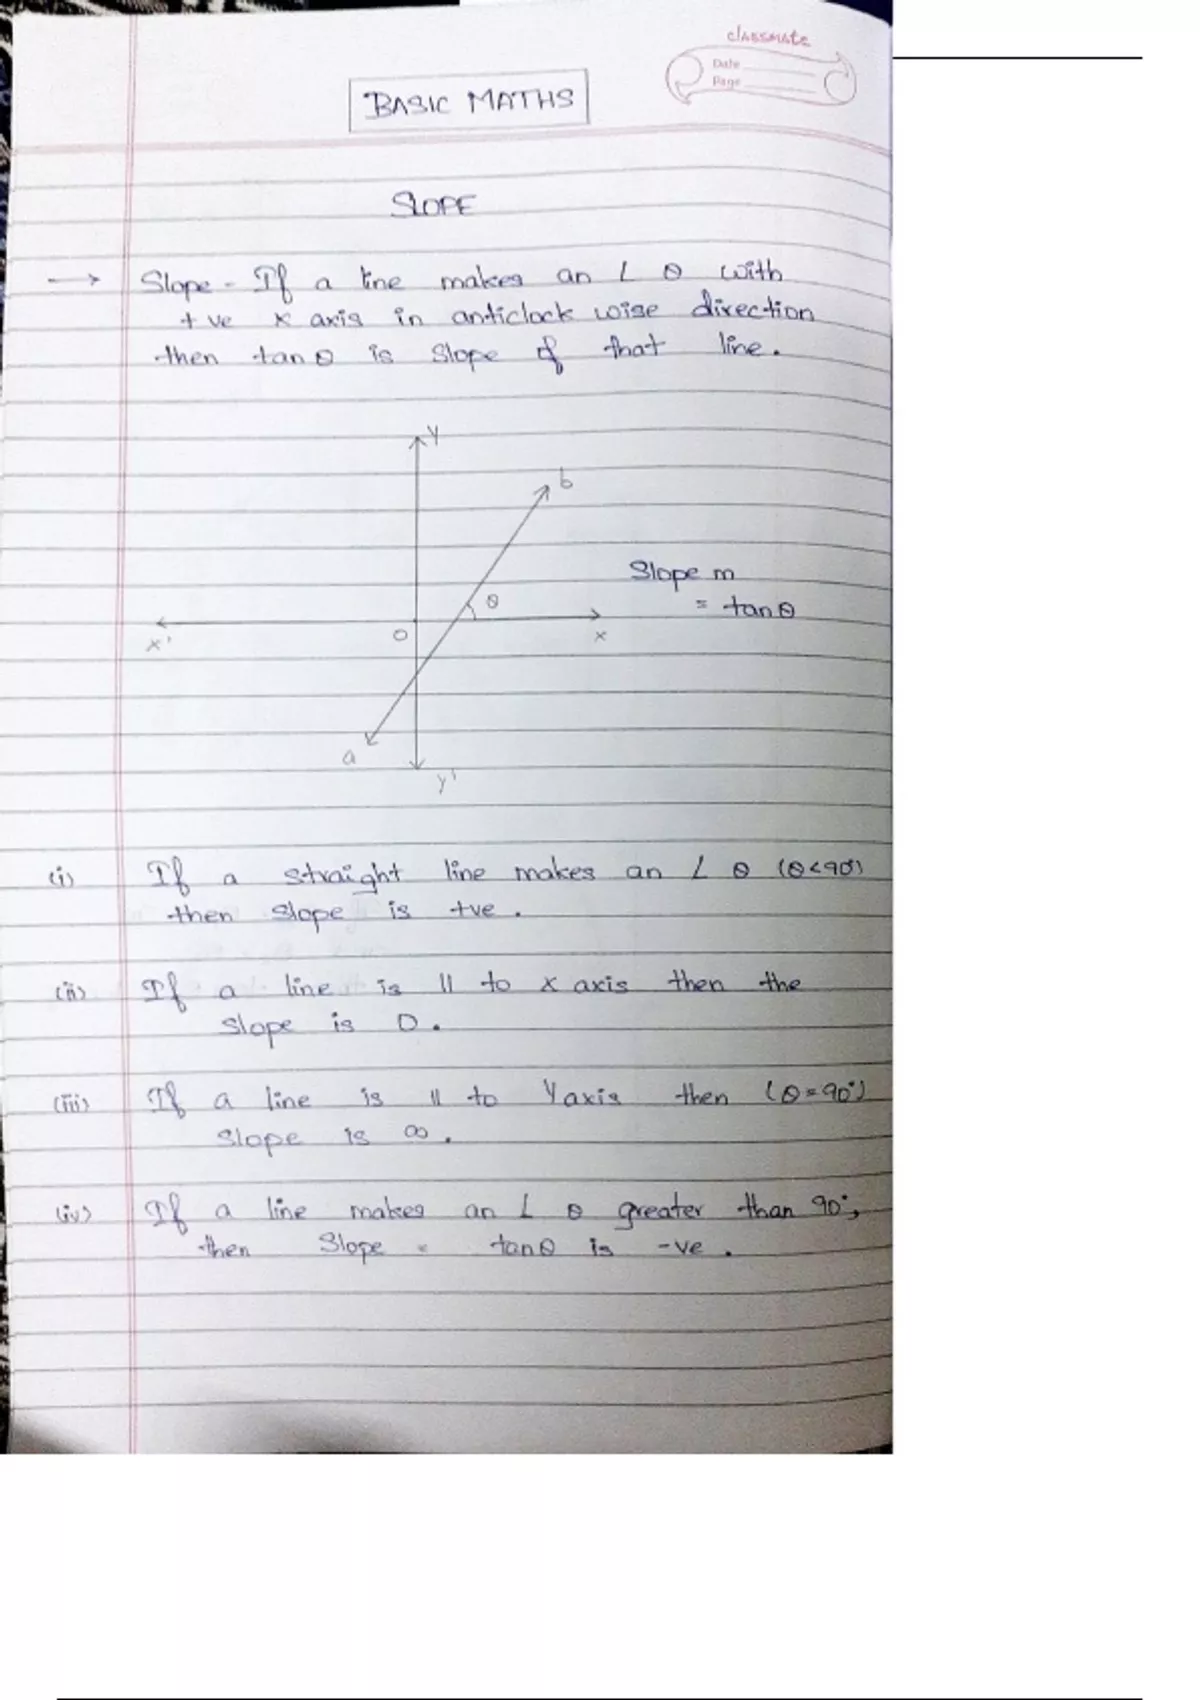 classmate
Date
Page
BASIC MATHS
SLOPE
→ Slope - If a line makes an ∠ θ with
+ve x axis in anticlock wise direction
then tan θ is slope of that line.
Y
b
Slope m
θ
= tan θ
x'
O
x
a
y'
(i) If a straight line makes an ∠ θ (θ<90°)
then slope is +ve.
(ii) If a line is || to x axis then the
slope is 0.
(iii) If a line is || to Y axis then (θ=90°)
slope is ∞.
(iv) If a line makes an ∠ θ greater than 90°,
then Slope = tan θ is -ve.